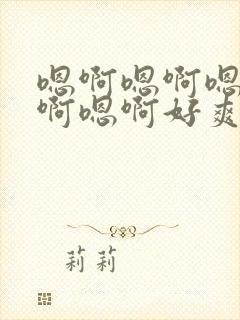 嗯啊嗯啊嗯
啊嗯啊好爽
莉莉